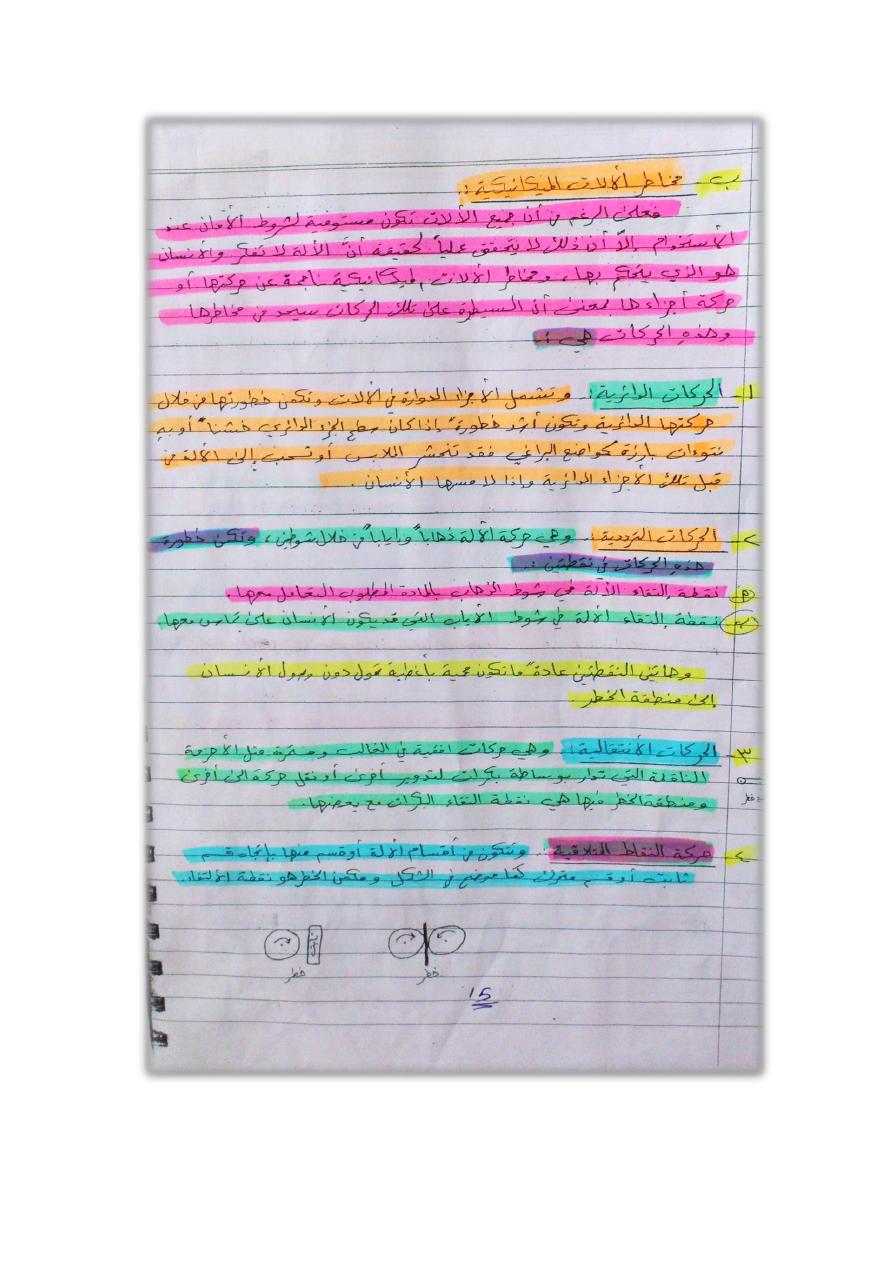 ب - مخاطر الآلات الميكانيكية :
فعلى الرغم من أن جميع الآلات تكون مستوفية لشروط الأمان عند
الأستخدام إلا أن ذلك لا يتحقق عملياً لحقيقة أنّ الآلة لا تفكر والأنسان
هو الذي يتحكم بها، ومخاطر الآلات الميكانيكية ناجمة عن حركتها أو
حركة أجزاءها بمعنى أن السيطرة على تلك الحركات سيحد من مخاطرها
وهذه الحركات هي :
١- الحركات الدائرية : وتشمل الأجزاء الدوارة في الآلات وتكمن خطورتها من خلال
حركتها الدائرية وتكون أشد خطورة إذا كان سطح الجزء الدائري خشناً أو به
نتوءات بارزة كمواضع البراغي فقد تنحشر الملابس أو تسحب إلى الآلة من
قبل تلك الأجزاء الدائرية وإذا لامسها الأنسان .
٢- الحركات الترددية : وهي حركة الآلة ذهاباً وإياباً من خلال شوطين، وتكمن خطورة
هذه الحركات في نقطتين :
نقطة إلتقاء الآلة في شوط الذهاب بالمادة المطلوب التعامل معها.
ب- نقطة إلتقاء الآلة في شوط الأياب التي قد يكون الأنسان على تماس معها
وهاتين النقطتين عادة ما تكون محمية بأغطية تحول دون وصول الأنسان
إلى منطقة الخطر.
٣- الحركات الأنتقالية : وهي حركات افقية في الغالب ومستمرة مثل الأحزمة
الناقلة التي تدار بوساطة بكرات لتدوير أخرى أو نقل حركة الى أخرى
ومنطقة الخطر فيها هي نقطة التقاء البكرات مع بعضها.
خطر
٤- حركة النقاط المتلاقية : وتتكون من أقسام الآلة أو قسم منها بإتجاه قسم
ثابت أو قسم متحرك كما موضح في الشكل ومكمن الخطر هو نقطة الألتقاء.
ثابت
خطر خطر
15